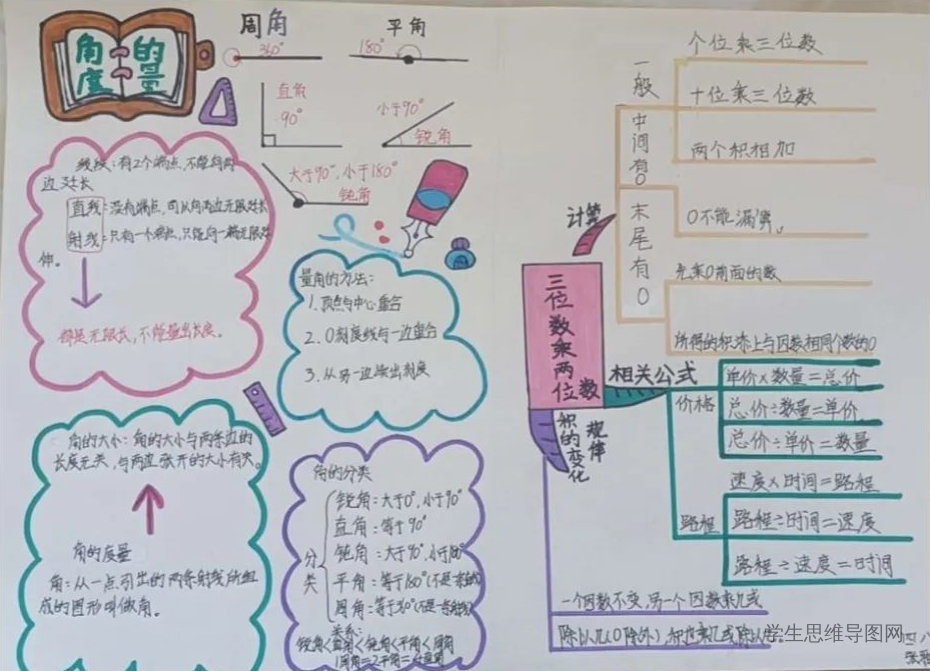 角的
度量
周角
360°
平角
180°
直角
90°
小于90°
锐角
大于90°,小于180°
钝角
线段:有2个端点,不能向两
边延长
直线:没有端点,可以向两边无限延长
射线:只有一个端点,只能向一端无限延
伸。
都是无限长,不能量出长度。
量角的方法:
1.顶点与中心重合
2.0刻度线与一边重合
3.从另一边读出刻度
角的大小:角的大小与两条边的
长度无关,与两边张开的大小有关。
角的度量
角:从一点引出的两条射线所组
成的图形叫做角。
角的分类
分类
锐角:大于0°,小于90°
直角:等于90°
钝角:大于90°,小于180°
平角:等于180°(不是直线)
周角:等于360°(不是一条射线)
关系:
锐角<直角<钝角<平角<周角
1周角=2平角=4直角
三位数乘两位数
计算
一般
个位乘三位数
十位乘三位数
两个积相加
中间有0
0不能漏乘。
末尾有0
先乘0前面的数
所得的积添上与因数相同个数的0
相关公式
价格
单价×数量=总价
总价÷数量=单价
总价÷单价=数量
路程
速度×时间=路程
路程÷时间=速度
路程÷速度=时间
积的变化
规律
一个因数不变,另一个因数乘几或
除以几(0除外),积也乘几或除以几
学生思维导图网